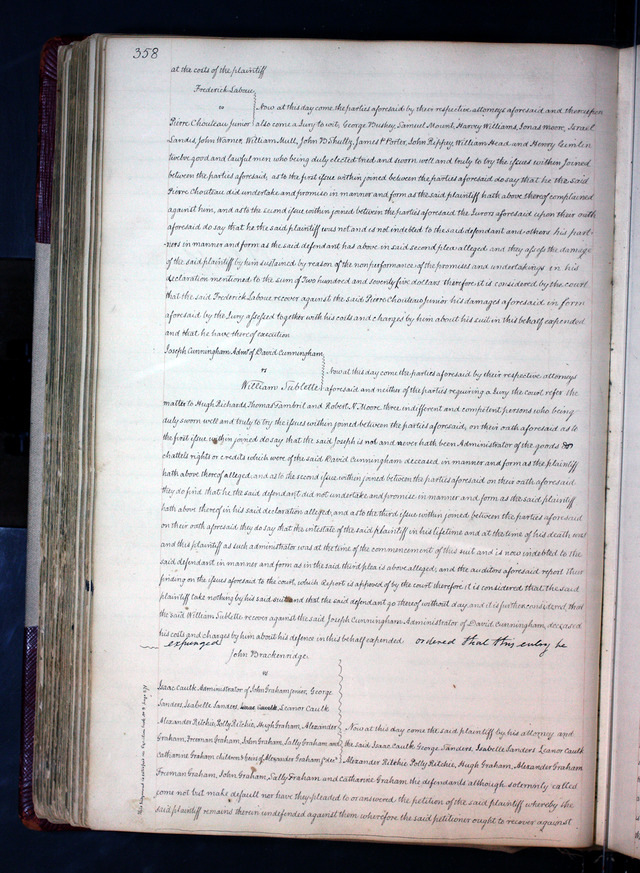 358
at the costs of the plaintiff
Frederick Laboue
vs
Now at this day come the parties aforesaid by their respective attorneys aforesaid and thereupon
Pierre Chouteau Junior also come a Jury to wit, George Bushey, Samuel Mount, Harvey Williams, Jonas Moore, Israel
Sandis, John Warner, William Hull, John B Shultz, James F Porter, John Rippey, William Head and Henry
twelve good and lawful men who being duly elected tried and sworn well and truly to try the issues within joined
between the parties aforesaid, as to the first issue within joined between the parties aforesaid do say that he the said
Pierre Chouteau did undertake and promise in manner and form as the said plaintiff hath above thereof complained
against him, and as to the second issue within joined between the parties aforesaid the Jurors aforesaid upon their oath
aforesaid do say that he the said plaintiff was not and is not indebted to the said defendant and others his part-
-ners in manner and form as the said defendant has above in said second plea alleged and they assess the damage
of the said plaintiff by him sustained by reason of the nonperformance of the promises and undertakings in his
declaration mentioned to the sum of Two hundred and seventy five dollars therefore it is considered by the court
that the said Frederick Laboue recover against the said Pierre Chouteau Junior his damages aforesaid in form
aforesaid by the Jury assessed together with his costs and charges by him about his suit in this behalf expended
and that he have thereof execution
Joseph Cunningham Admr of David Cunningham
vs
Now at this day come the parties aforesaid by their respective attorneys
William Sublette aforesaid and neither of the parties requiring a Jury the court refer the
matter to Hugh Richards Thomas Fambril and Robert N Moore three indifferent and competent persons who being
duly sworn well and truly to try the issues within joined between the parties aforesaid, on their oath aforesaid as to
the first issue within joined do say that the said Joseph is not and never hath been Administrator of the goods
chattels rights or credits which were of the said David Cunningham deceased in manner and form as the plaintiff
hath above thereof alleged, and as to the second issue within joined between the parties aforesaid on their oath aforesaid
they do find that he the said defendant did not undertake and promise in manner and form as the said plaintiff
hath above thereof in his said declaration alleged; and as to the third issue within joined between the parties aforesaid
on their oath aforesaid they do say that the intestate of the said plaintiff in his lifetime and at the time of his death was
and this plaintiff as such administrator was at the time of the commencement of this suit and is now indebted to the
said defendant in manner and form as in the said third plea is above alleged; and the auditors aforesaid report their
finding on the issues aforesaid to the court, which Report is approved of by the court therefore it is considered that the said
plaintiff take nothing by his said suit and that the said defendant go thereof without day and it is further considered that
the said William Sublette recover against the said Joseph Cunningham Administrator of David Cunningham, deceased
his costs and charges by him about his defence in this behalf expended ordered that this entry be
expunged
John Brackenridge
vs
Isaac Caulk Administrator of John Graham junior, George
Sanders, Isabelle Sanders, Isaac Caulk, Leanor Caulk
Alexander Ritchie, Polly Ritchie, Hugh Graham, Alexander
Now at this day come the said plaintiff by his attorney and
Graham, Freeman Graham, John Graham, Sally Graham and the said Isaac Caulk George Sanders Isabelle Sanders Leanor Caulk
Catharine Graham children & heirs of Alexander Graham Alexander Ritchie Polly Ritchie, Hugh Graham, Alexander Graham
Freeman Graham, John Graham, Sally Graham and Catharine Graham the defendants although solemnly called
come not but make default nor have they pleaded to or answered the petition of the said plaintiff whereby the
said plaintiff remains therein undefended against them wherefore the said petitioner ought to recover against